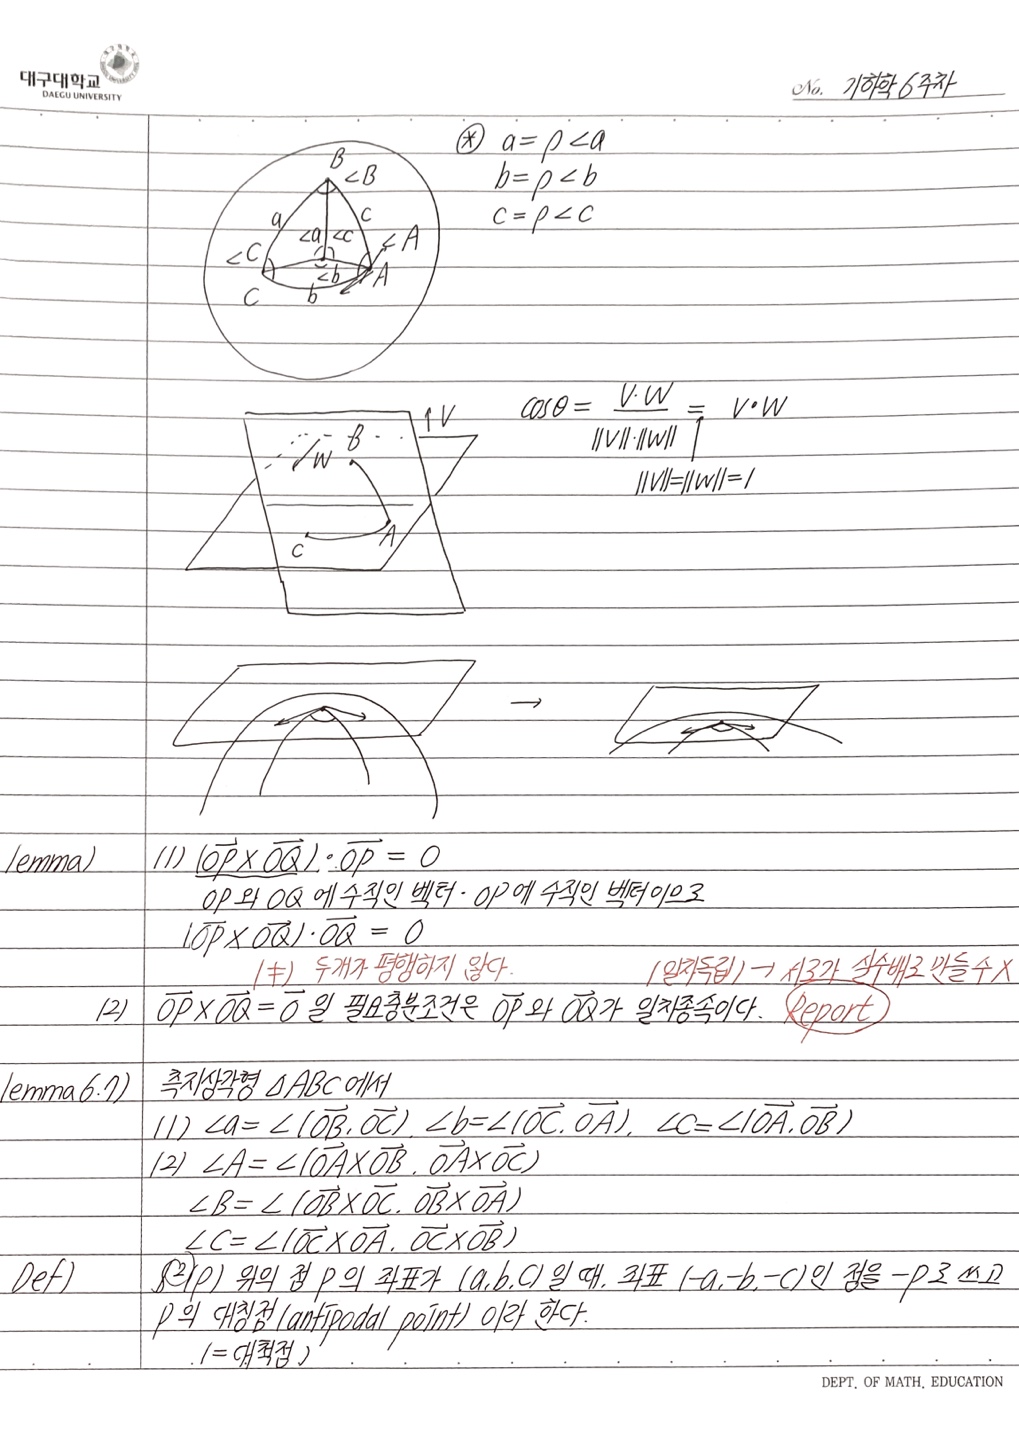 대구대학교
DAEGU UNIVERSITY
No. 기하학 6주차
B
∠B
a
c
∠C
∠a
∠c
∠A
∠b
A
C
b
⊛ a = ρ∠a
b = ρ∠b
c = ρ∠c
V
B
W
A
C
cosθ = V·W / ||V||·||W|| = V·W
||V||=||W||=1
→
lemma) (1) (OP→ × OQ→)·OP→ = 0
OP와 OQ에 수직인 벡터·OP에 수직인 벡터이므로
(OP→ × OQ→)·OQ→ = 0
(≠) 두개가 평행하지 않다. (일차독립) → 서로가 실수배로 만들 수 X
(2) OP→ × OQ→ = 0→ 일 필요충분조건은 OP→와 OQ→가 일차종속이다. Report
lemma 6.7) 측지삼각형 △ABC에서
(1) ∠a = ∠(OB→, OC→), ∠b = ∠(OC→, OA→), ∠C = ∠(OA→, OB→)
(2) ∠A = ∠(OA→ × OB→, OA→ × OC→)
∠B = ∠(OB→ × OC→, OB→ × OA→)
∠C = ∠(OC→ × OA→, OC→ × OB→)
Def) S²(ρ) 위의 점 P의 좌표가 (a,b,c)일 때, 좌표 (-a,-b,-c)인 점을 -P로 쓰고
P의 대칭점(antipodal point) 이라 한다.
(=대척점)
DEPT. OF MATH. EDUCATION